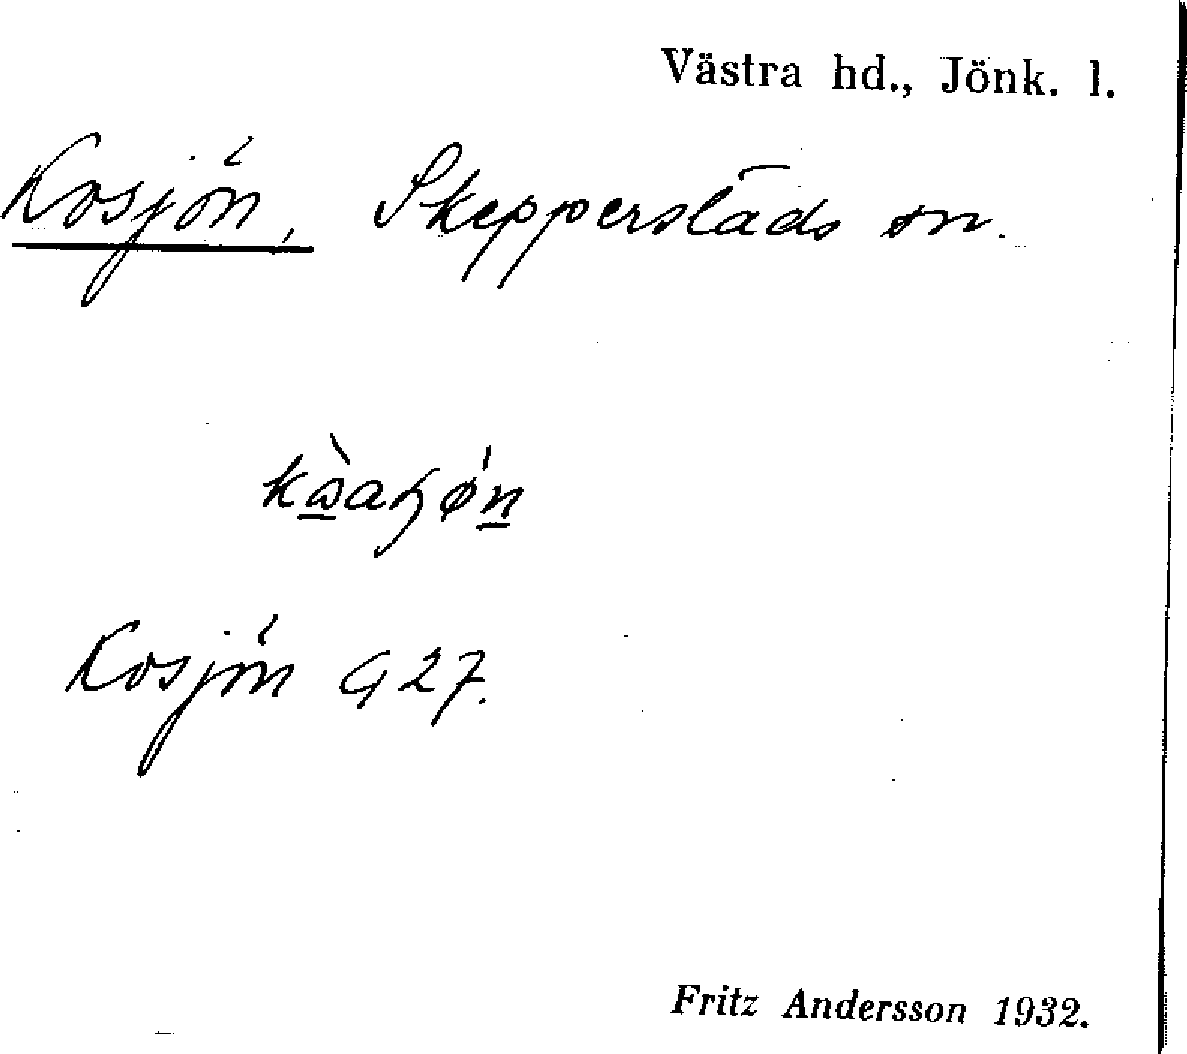 Västra hd., Jönk. l.
Kosjön, Skepperstads sn.
Kosjön G 27.
Fritz Andersson 1932.